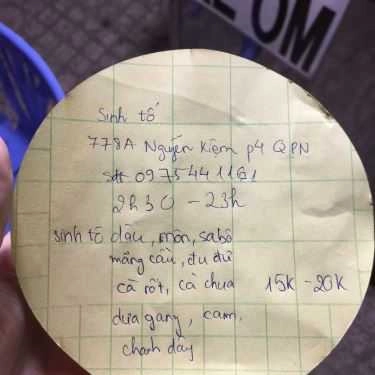 ÔM
Sinh tố
778A Nguyễn Kiệm p4 QPN
sđt 0975441181
2h30 - 23h
sinh tố dâu, môn, sabô
mãng cầu, đu đủ
cà rốt, cà chua 15k - 20k
dưa gang, cam,
chanh dây